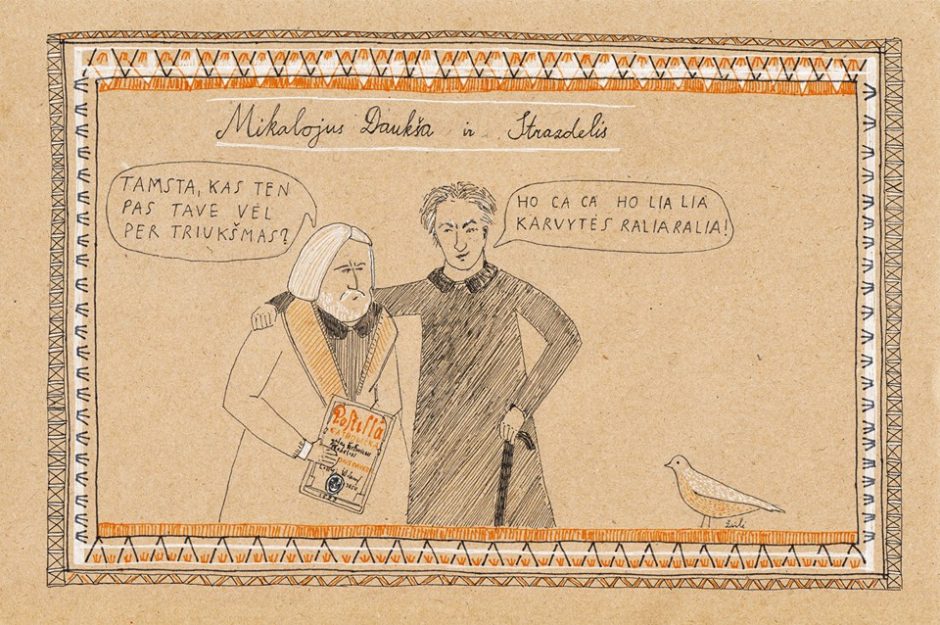 Mikalojus Daukša ir Strazdelis
TAMSTA, KAS TEN
PAS TAVE VĖL
PER TRIUKŠMAS?
HO CA CA HO LIA LIA
KARVYTĖS RALIARALIA!
Postilla